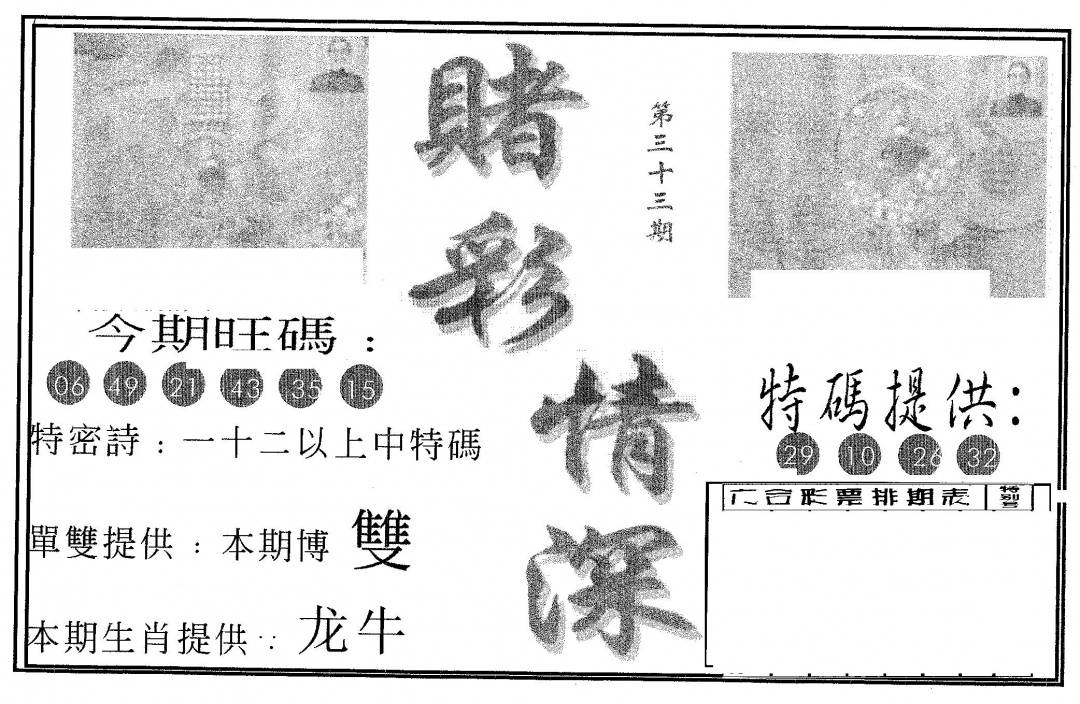 賭彩情深
第三十三期
今期旺碼：
06 49 21 43 35 15
特密詩：一十二以上中特碼
單雙提供：本期博 雙
本期生肖提供：龙牛
特碼提供：
29 10 26 32
六合彩票排期表 特别号